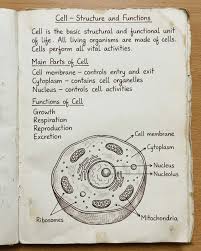 Cell – Structure and Functions
Cell is the basic structural and functional unit
of life. All living organisms are made of cells.
Cells perform all vital activities.
Main Parts of Cell
Cell membrane – controls entry and exit
Cytoplasm – contains cell organelles
Nucleus – controls cell activities
Functions of Cell
Growth
Respiration
Reproduction
Excretion
Cell membrane
Cytoplasm
Nucleus
Nucleolus
Ribosomes
Mitochondria